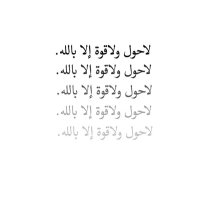 لاحول ولاقوة إلا بالله.
لاحول ولاقوة إلا بالله.
لاحول ولاقوة إلا بالله.
لاحول ولاقوة إلا بالله.
لاحول ولاقوة إلا بالله.